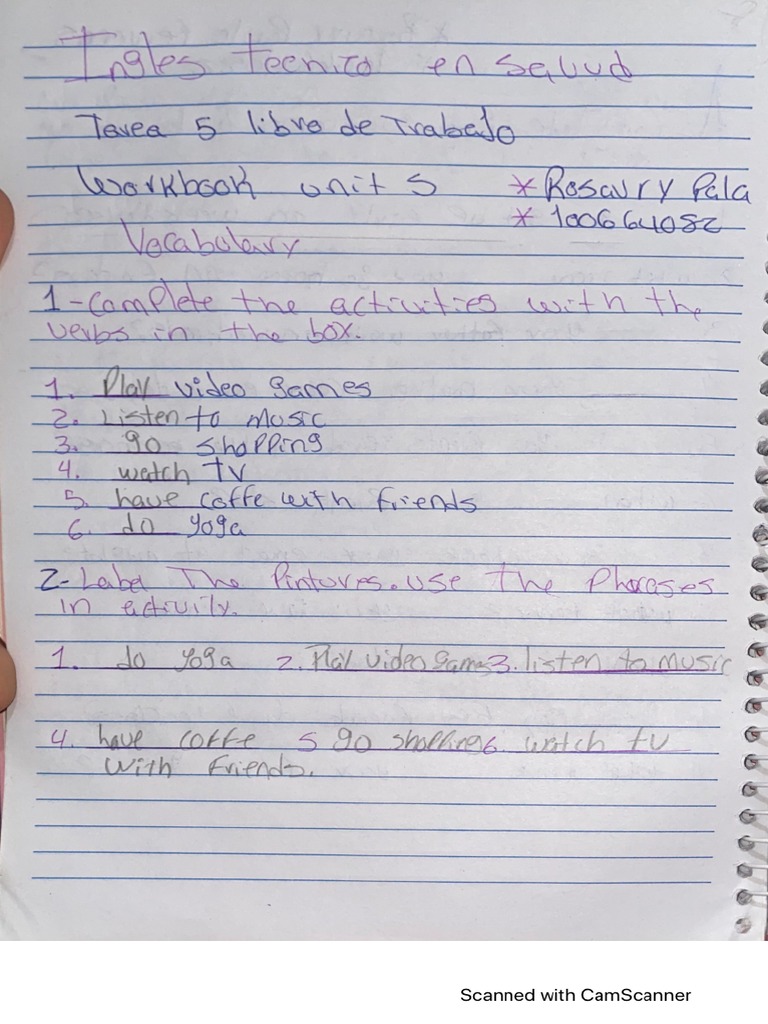 Ingles Tecnico en Salud
Tarea 5 libro de Trabajo
Workbook unit 5 * Rosaury Pala
* 100664082
Vocabulary
1-Complete the activities with the
verbs in the box.
1. Play video games
2. Listen to music
3. go shopping
4. watch tv
5. have coffe with friends
6. do yoga
2-Label The Pintures. use the Phrases
in activity.
1. do yoga 2. Play video games 3. listen to music
4. have coffe 5 go shopping 6. watch tv
with friends.
Scanned with CamScanner